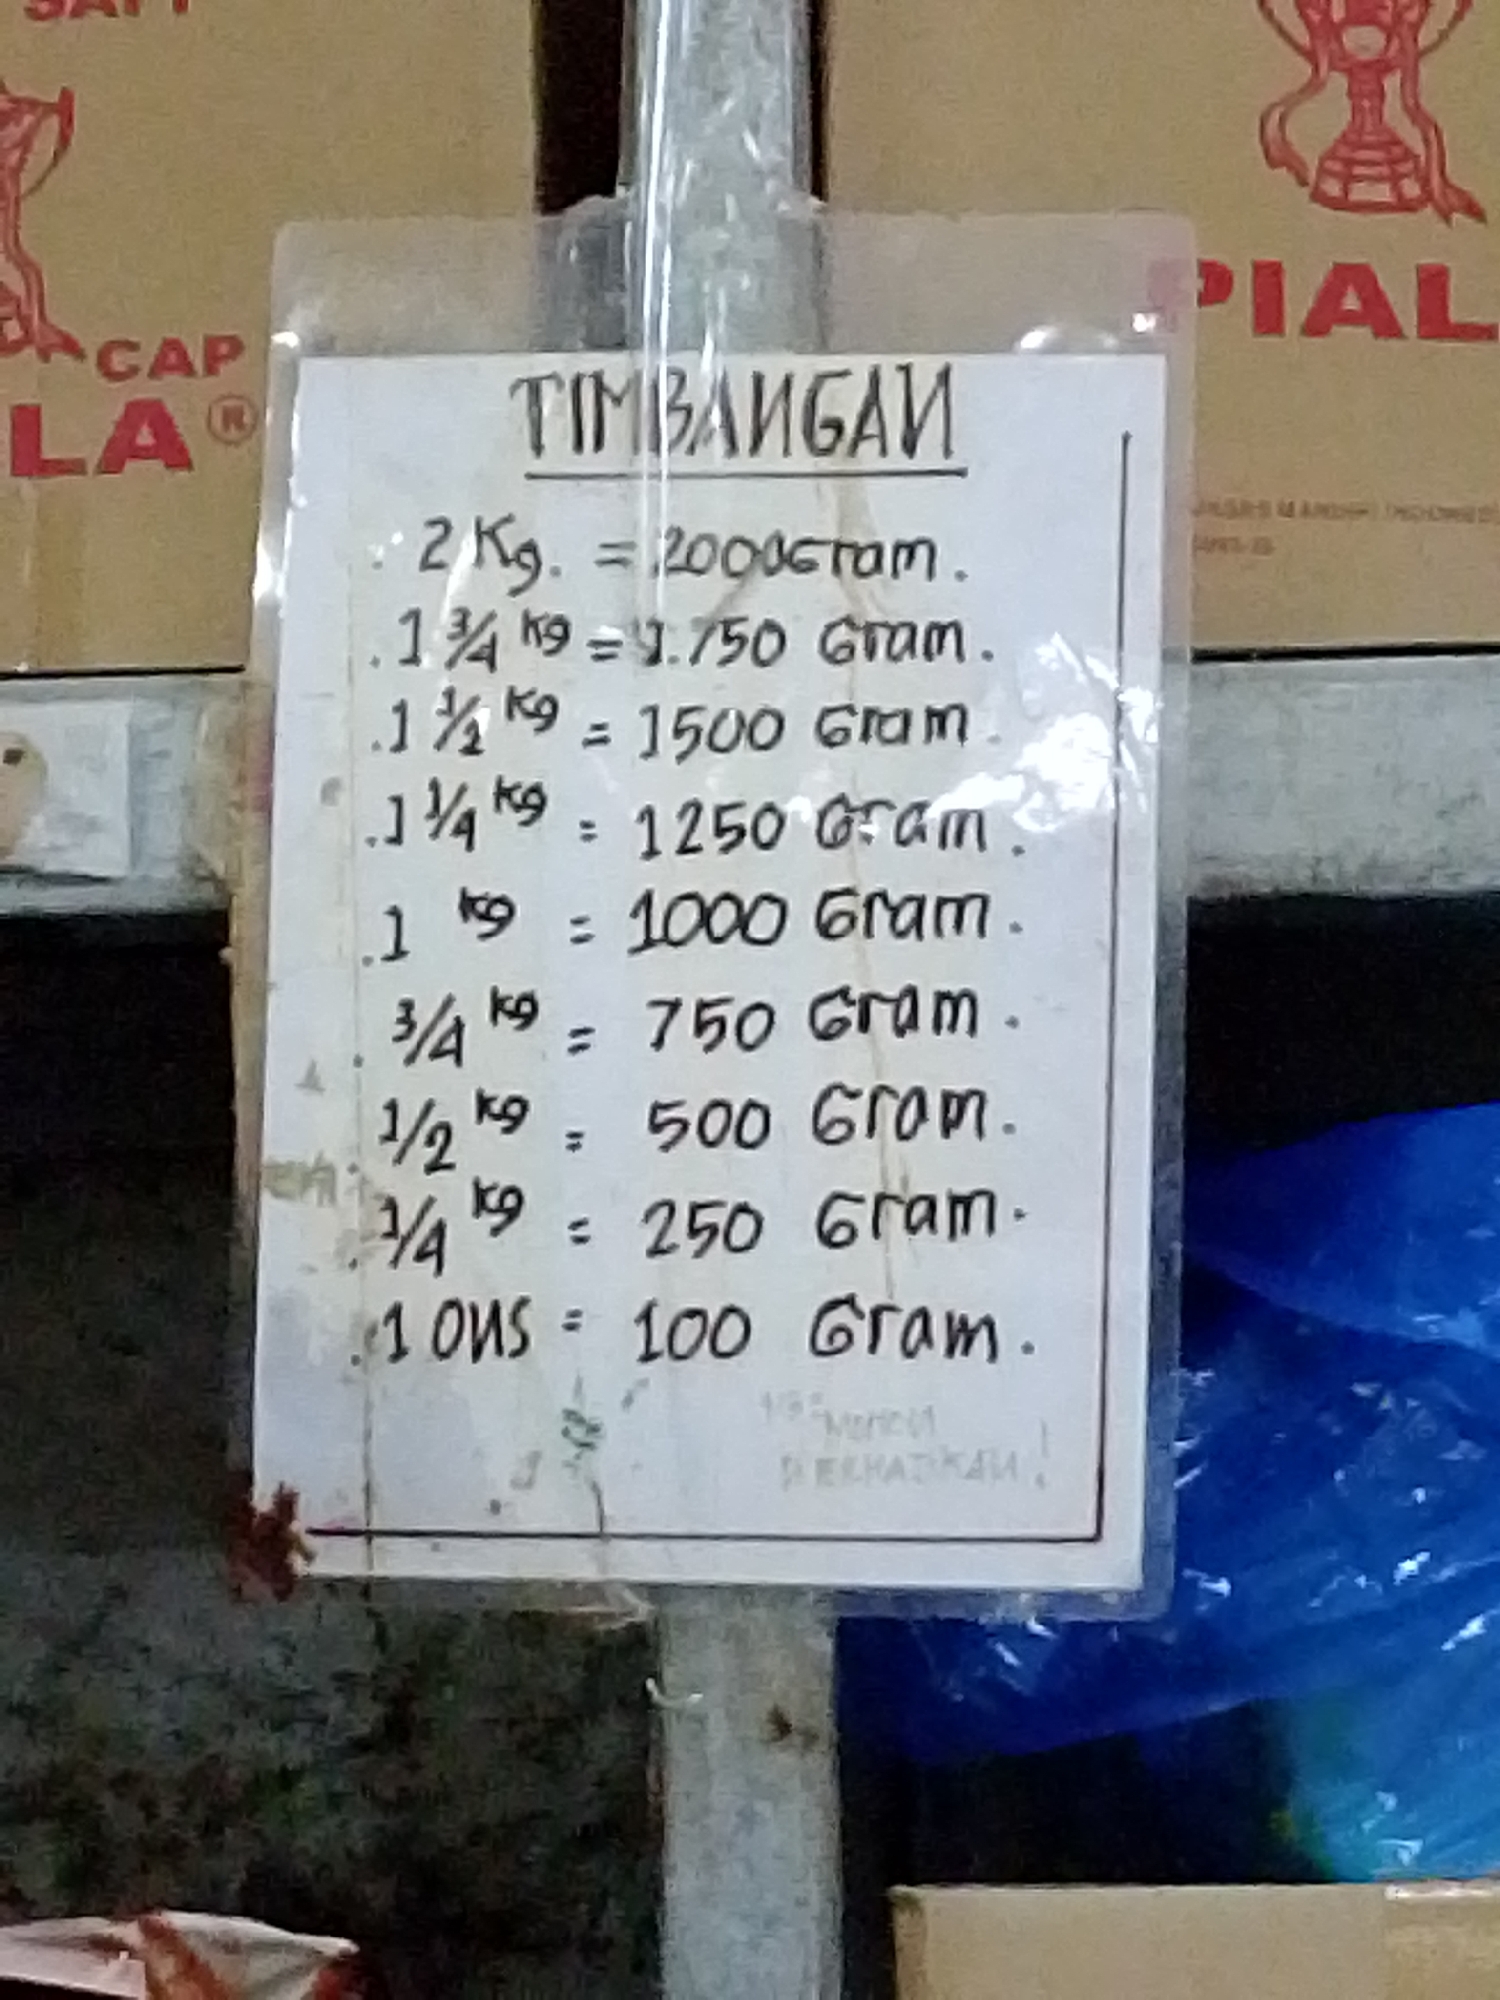 SAPI
CAP
LA®
PIAL
TIMBANGAN
. 2 Kg. = 2000 Gram.
. 1 3/4 kg = 1.750 Gram.
. 1 1/2 kg = 1500 Gram.
. 1 1/4 kg = 1250 Gram.
. 1 kg = 1000 Gram.
. 3/4 kg = 750 Gram.
. 1/2 kg = 500 Gram.
. 1/4 kg = 250 Gram.
. 1 ONS = 100 Gram.
MOHON
DIPERHATIKAN !